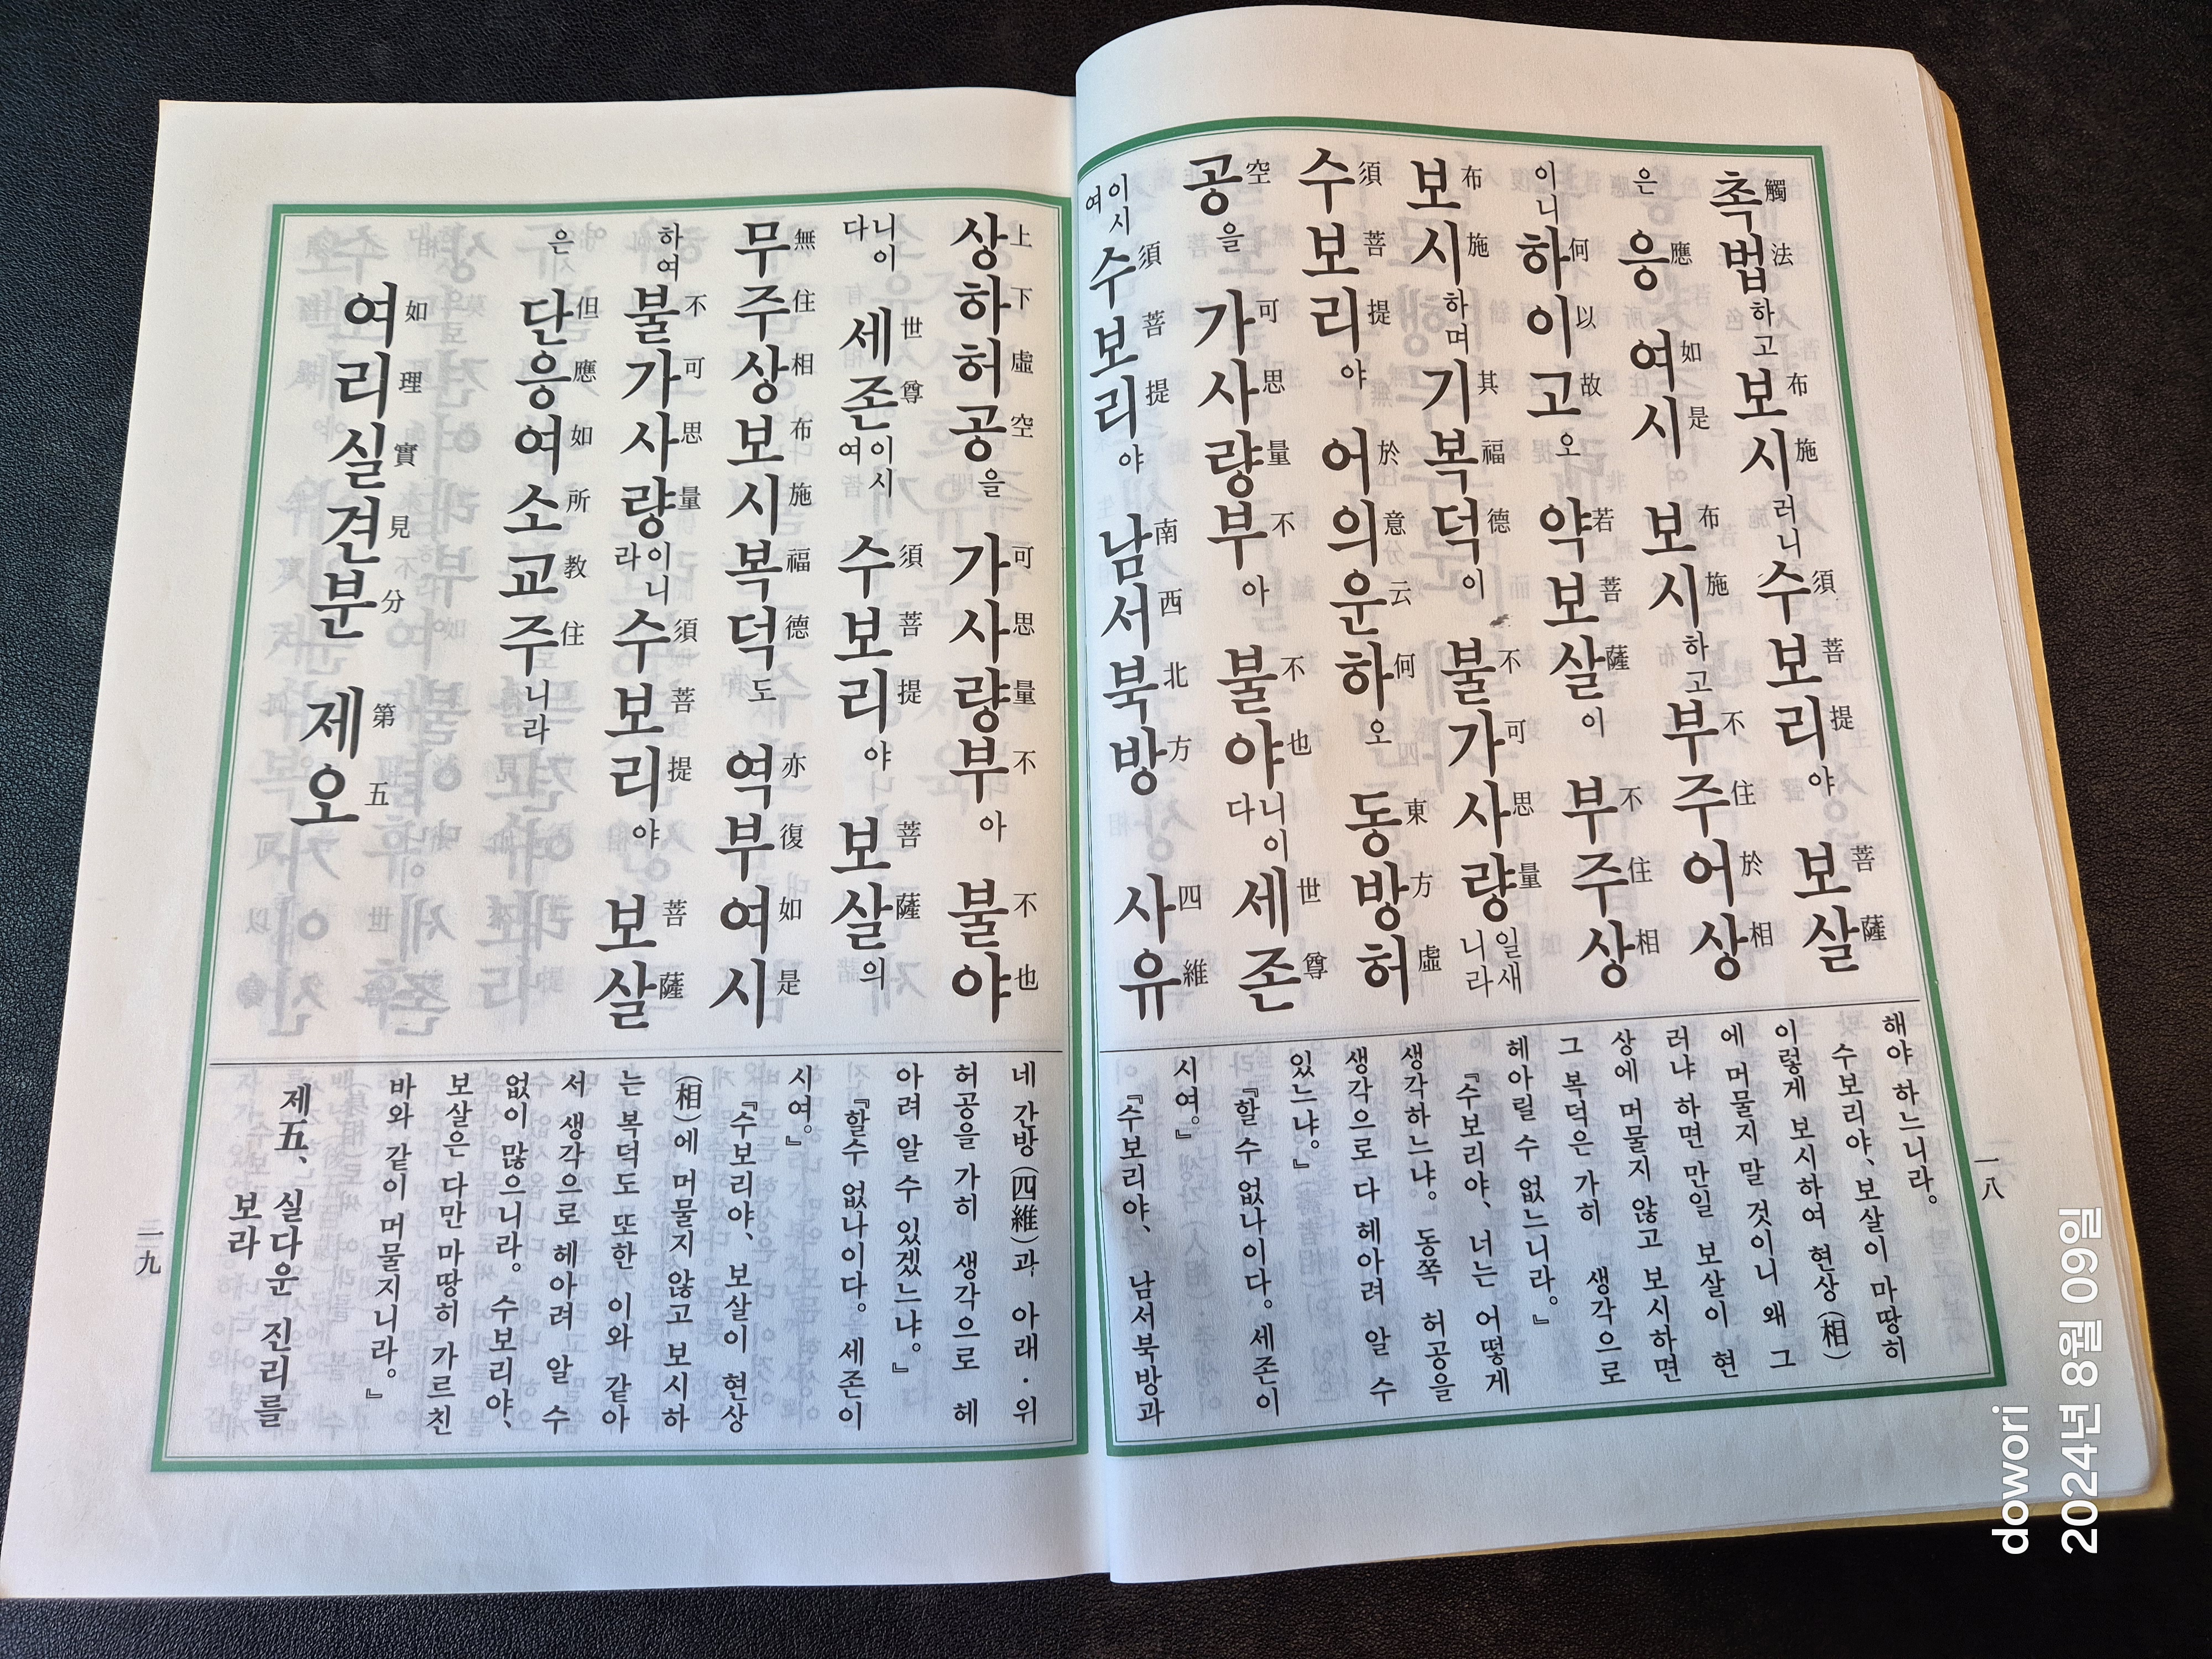 촉법하고 보시러니 수보리야 보살
觸法 布施 須菩提 菩薩
은 응여시 보시하고 부주어상
應如是 布施 不住於相
이니 하이고오 약보살이 부주상
何以故 若菩薩 不住相
보시하며 기복덕이 불가사량일새니라
布施 其福德 不可思量
수보리야 어의운하오 동방허
須菩提 於意云何 東方虛
공을 가사량부아 불야니이다 세존
空 可思量不 不也 世尊
이시여 수보리야 남서북방 사유
須菩提 南西北方 四維
해야 하느니라。
수보리야、보살이 마땅히
이렇게 보시하여 현상(相)
에 머물지 말 것이니 왜 그
러냐 하면 만일 보살이 현
상에 머물지 않고 보시하면
그 복덕은 가히 생각으로
헤아릴 수 없느니라。』
『수보리야、너는 어떻게
생각하느냐。 동쪽 허공을
생각으로 다 헤아려 알 수
있느냐。』
『할 수 없나이다。세존이
시여。』
『수보리야、 남서북방과
一八
상하허공을 가사량부아 불야
上下虛空 可思量不 不也
니이다 세존이시여 수보리야 보살의
世尊 須菩提 菩薩
무주상보시복덕도 역부여시
無住相布施福德 亦復如是
하여 불가사량이니라 수보리야 보살
不可思量 須菩提 菩薩
은 단응여소교주니라
但應如所教住
여리실견분 제오
如理實見分 第五
네 간방(四維)과 아래·위
허공을 가히 생각으로 헤
아려 알 수 있겠느냐。』
『할수 없나이다。세존이
시여。』
『수보리야、보살이 현상
(相)에 머물지 않고 보시하
는 복덕도 또한 이와 같아
서 생각으로 헤아려 알 수
없이 많으니라。수보리야、
보살은 다만 마땅히 가르친
바와 같이 머물지니라。』
제五、실다운 진리를
보라
一九
dowori
2024년 8월 09일